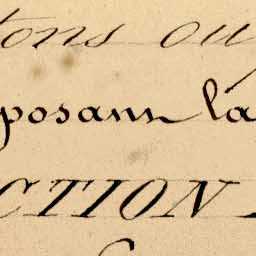 tons ou
posant la
CTION